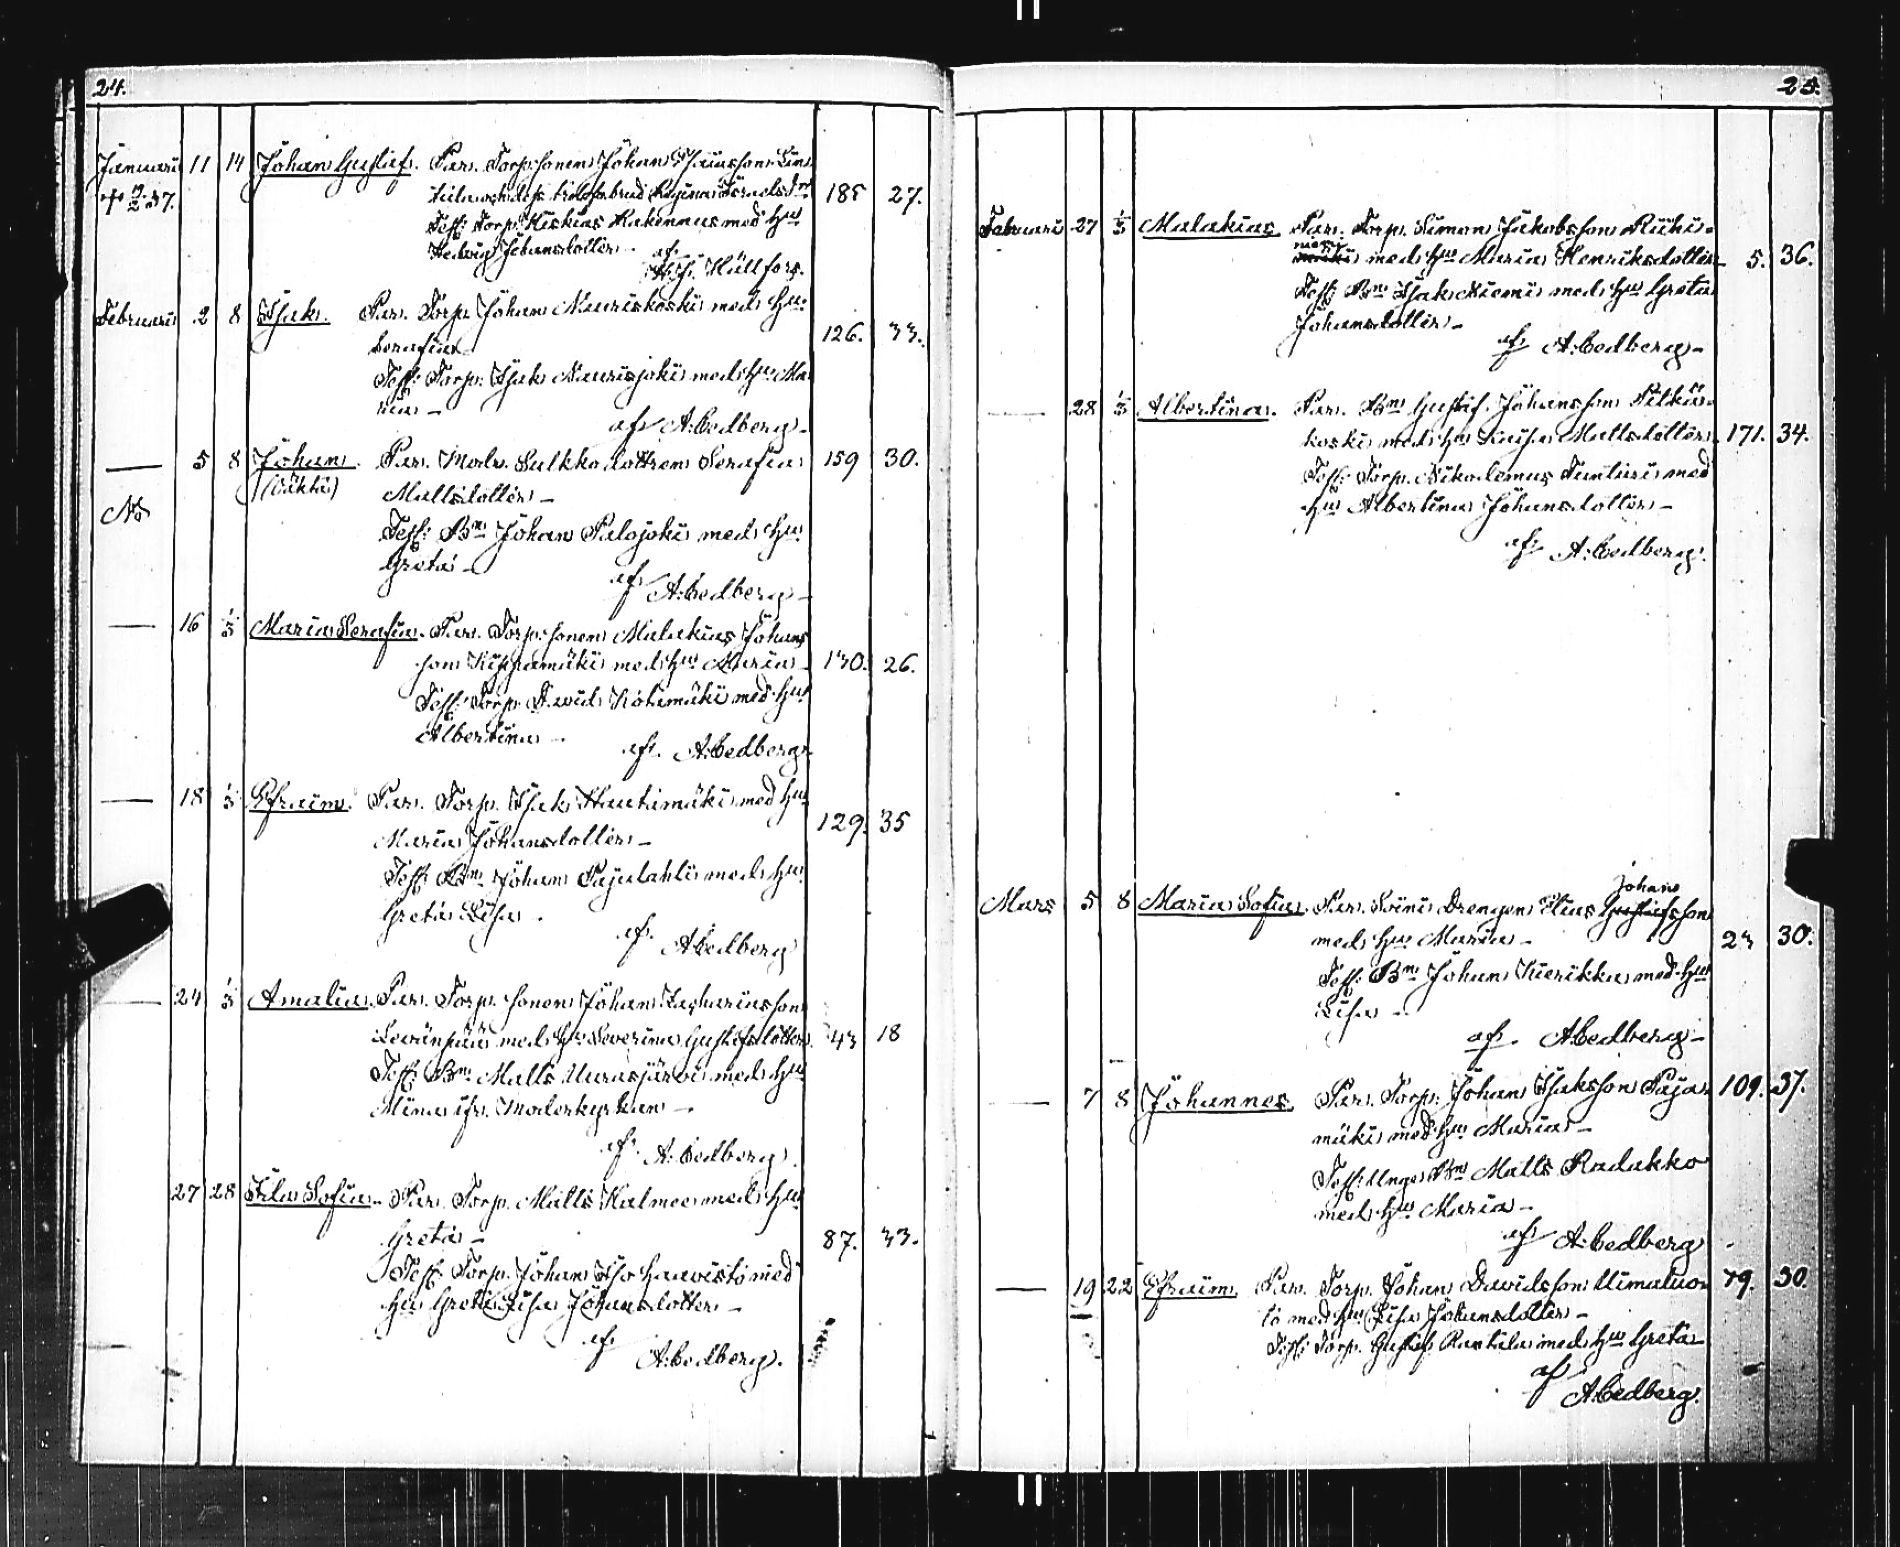 24.
Januari 11 14 Johan Gustaf. Par. Torp. sonen Johan Isaksson Lin
185 27.
Test: Torp. Heskias Hakennus med Hu
Hedvig Johansdotter –
af H. Hällfors.
Februari 2 8 Isak. Par. Torp. Johan Nauriskoski med Hu
126. 33.
Serafia
Test: Torp. Isak Naurisjoki med Hu Ma
ria –
af A. Cedberg –
— 5 8 Johan. Par. Modr. Sulkko dottren Serafia 159 30.
(oäkta) Mattsdotter –
No
Test: Bn Johan Palojoki med Hu
Greta –
af A. Cedberg –
— 16 1/3 Maria Serafia. Par. Torp. sonen Malakias Johans
son Kippamäki med Hu Maria – 130. 26.
Test: Torp. David Kotimäki med Hu
Albertina –
af. A. Cedberg
— 18 1/3 Efraim. Par. Torp. Isak Hautamäki med Hu
129. 35
Maria Johansdotter –
Test: Bn Johan Pajulahti med Hu
Greta Lisa.
af. A. Cedberg
— 24 1/3 Amalia. Par. Torp. sonen Johan Zachariasson
Levänpää med Hu Severina Gustafsdotter. 43 18
Test: Bn Matts Uurasjärvi med Hu
Mina ifr. Moderkyrkan –
af. A. Cedberg.
27 28 Ida Sofia – Par. Torp. Matts Halmee med Hu
Greta – 87. 33.
Test: Torp. Johan Iso Haavisto med
Hu Greta Lisa Johansdotter –
af
A. Cedberg.
25.
Februari 27 1/3 Malakias Par. Torp. Simon Jakobsson Riihi-
niemi med Hu Maria Henriksdotter 5. 36.
Test: Bn Isak Niemi med Hu Greta
Johansdotter –
af A. Cedberg –
— 28 1/3 Albertina. Par. Bn Gustaf Johansson Pitkä-
koski med Hu Kajsa Mattsdotter 171. 34.
Test: Torp. Nikodemus Tunturi med
Hu Albertina Johansdotter –
af A. Cedberg.
Mars 5 8 Maria Sofia. Par. Soini Drengen Elias Gustafsson
Johans
med Hu Maria – 23 30.
Test: Bn Johan Kierikka med Hu
Lisa –
af. A. Cedberg –
— 7 8 Johannes. Par. Torp. Johan Isaksson Paja- 109. 37.
mäki med Hu Maria –
Test: Unge Bn Matts Rudakko
med Hu Maria –
af A. Cedberg
— 19 22 Efraim. Par. Torp. Johan Davidsson Uimaluo- 79. 30.
to med Hu Lisa Johansdotter –
Test: Torp. Gustaf Rantala med Hu Greta –
af
A. Cedberg.